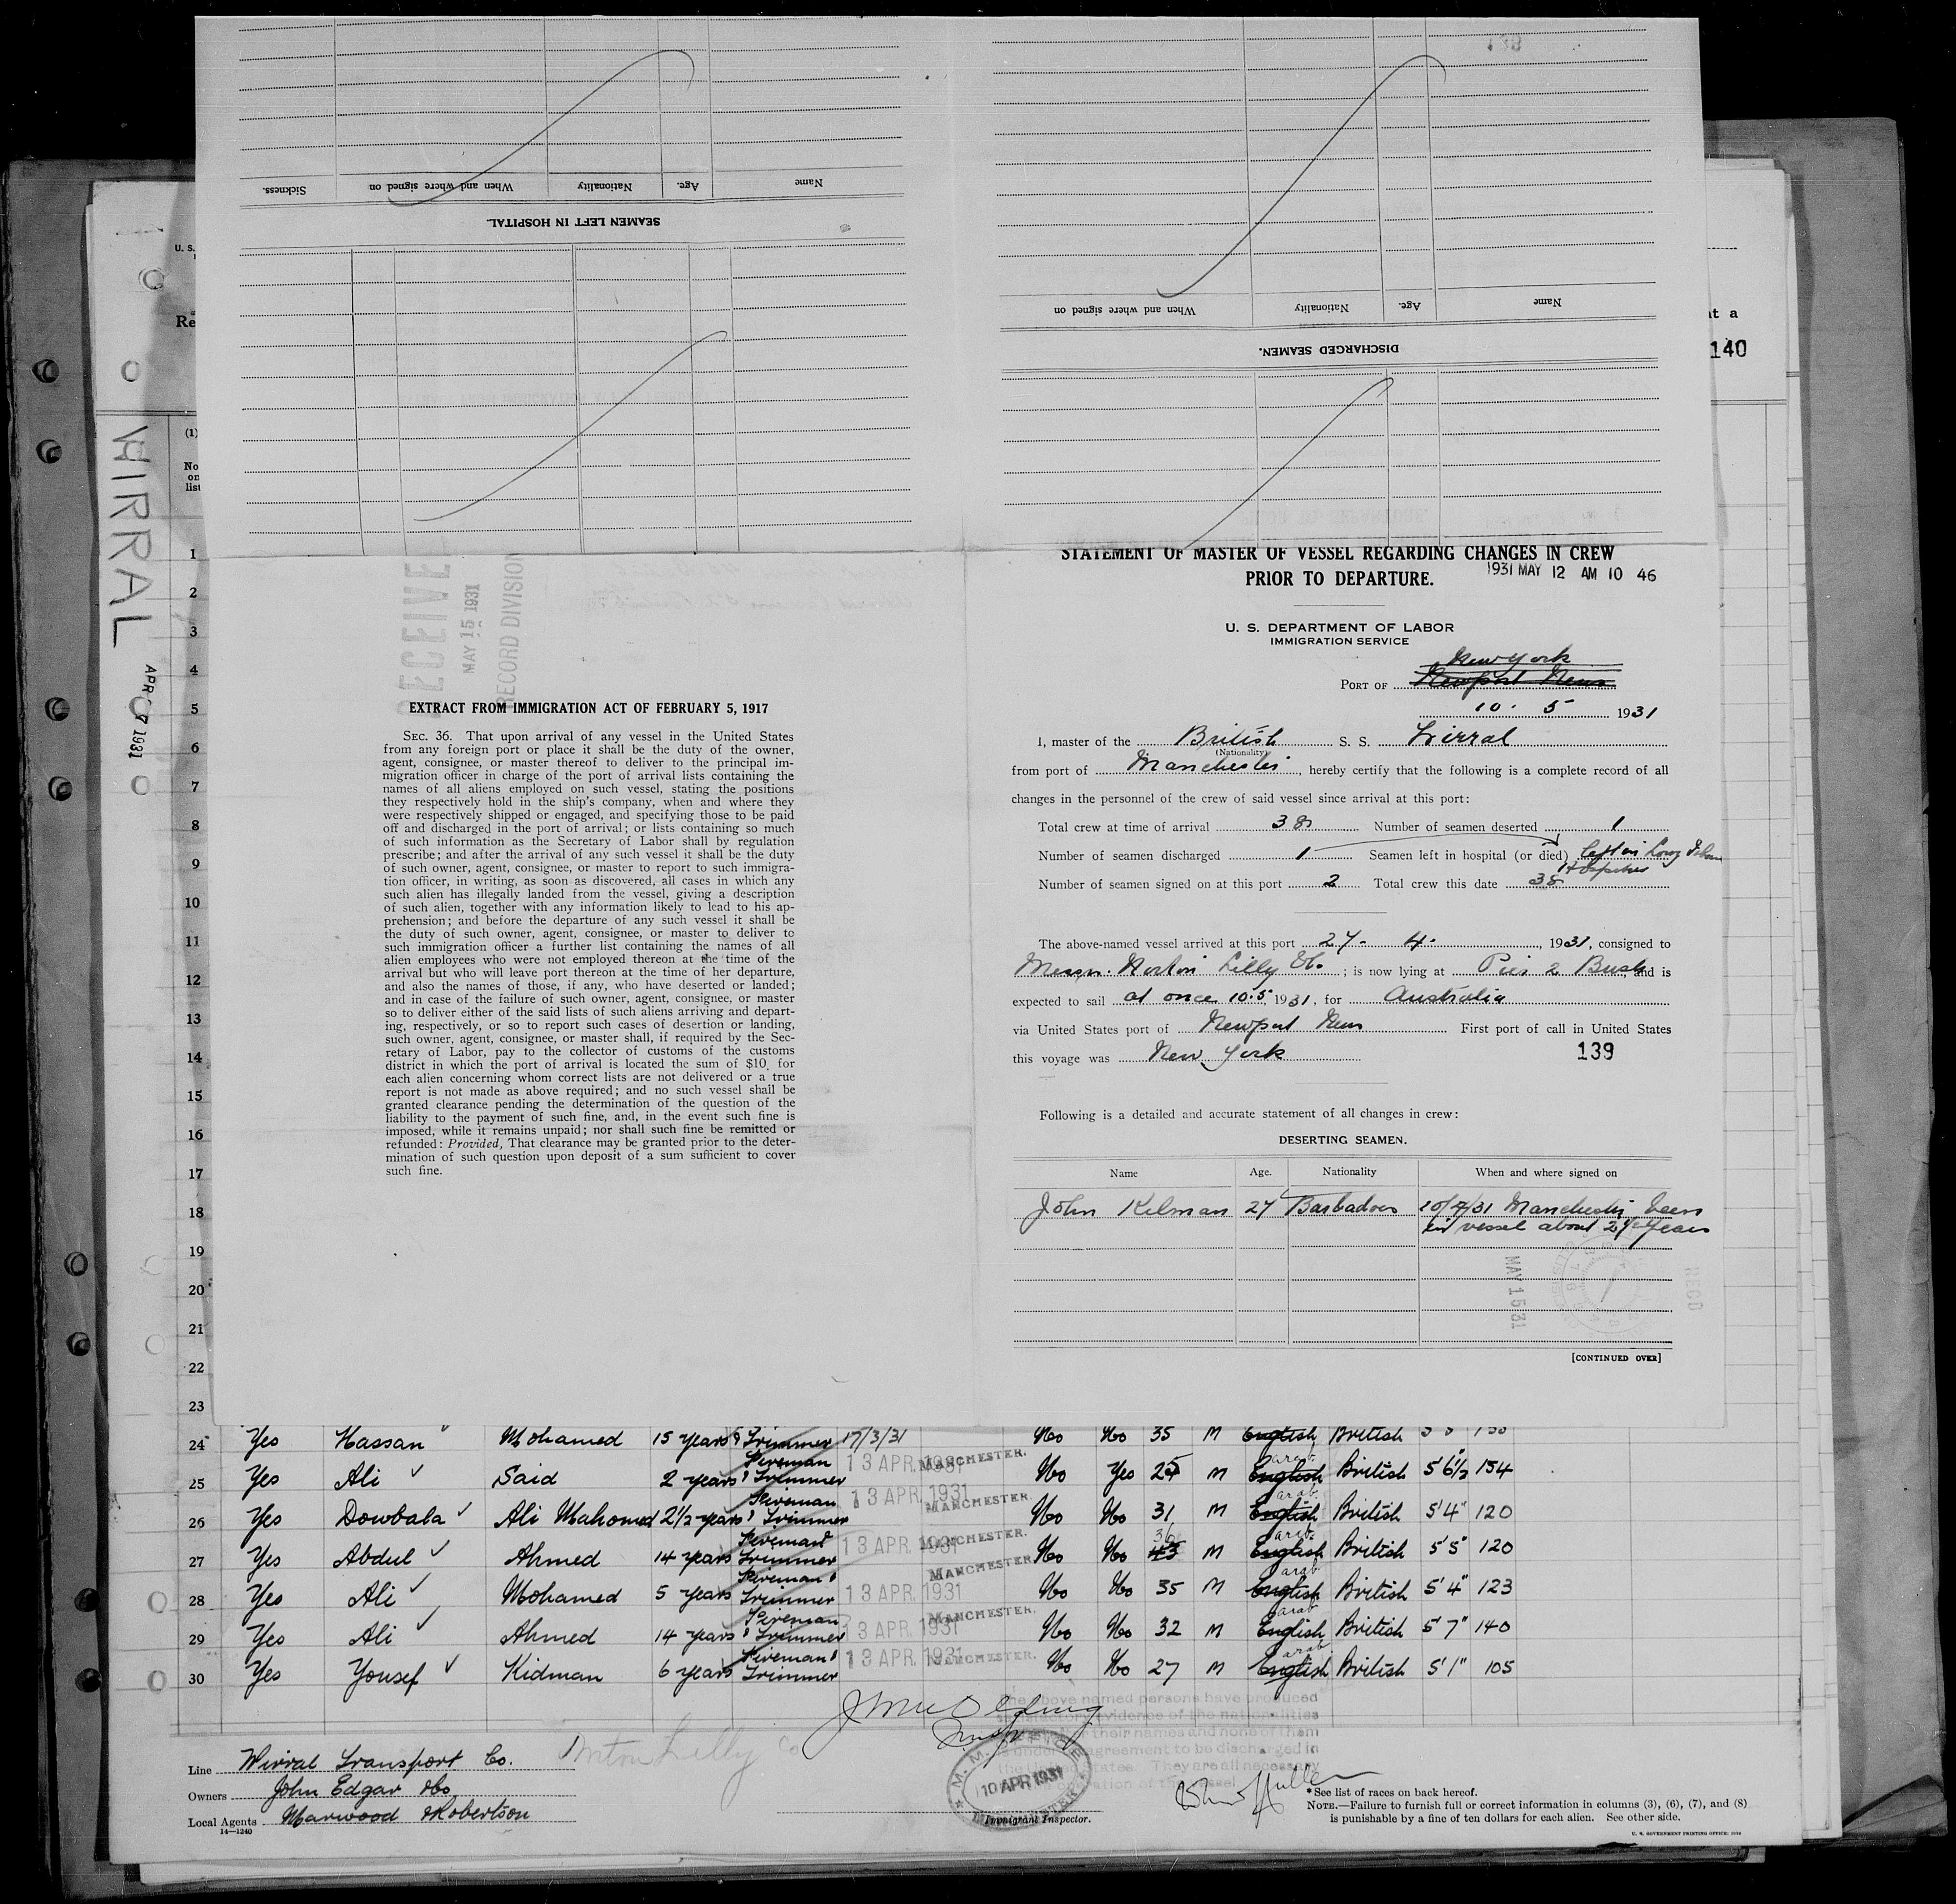 138
Sickness.
When and where signed on
Nationality
Age.
Name
SEAMEN LEFT IN HOSPITAL.
When and where signed on
Nationality
Age.
Name
DISCHARGED SEAMEN.
U. S.
Re
at a
140
(1)
No
on
list
WIRRAL
APR 1931
1
2
3
4
5
6
7
8
9
10
11
12
13
14
15
16
17
18
19
20
21
22
23
RECEIVE
MAY 15 1931
RECORD DIVISION
EXTRACT FROM IMMIGRATION ACT OF FEBRUARY 5, 1917
SEC. 36. That upon arrival of any vessel in the United States
from any foreign port or place it shall be the duty of the owner,
agent, consignee, or master thereof to deliver to the principal im-
migration officer in charge of the port of arrival lists containing the
names of all aliens employed on such vessel, stating the positions
they respectively hold in the ship's company, when and where they
were respectively shipped or engaged, and specifying those to be paid
off and discharged in the port of arrival; or lists containing so much
of such information as the Secretary of Labor shall by regulation
prescribe; and after the arrival of any such vessel it shall be the duty
of such owner, agent, consignee, or master to report to such immigra-
tion officer, in writing, as soon as discovered, all cases in which any
such alien has illegally landed from the vessel, giving a description
of such alien, together with any information likely to lead to his ap-
prehension; and before the departure of any such vessel it shall be
the duty of such owner, agent, consignee, or master to deliver to
such immigration officer a further list containing the names of all
alien employees who were not employed thereon at the time of the
arrival but who will leave port thereon at the time of her departure,
and also the names of those, if any, who have deserted or landed;
and in case of the failure of such owner, agent, consignee, or master
so to deliver either of the said lists of such aliens arriving and depart-
ing, respectively, or so to report such cases of desertion or landing,
such owner, agent, consignee, or master shall, if required by the Sec-
retary of Labor, pay to the collector of customs of the customs
district in which the port of arrival is located the sum of $10 for
each alien concerning whom correct lists are not delivered or a true
report is not made as above required; and no such vessel shall be
granted clearance pending the determination of the question of the
liability to the payment of such fine, and, in the event such fine is
imposed, while it remains unpaid; nor shall such fine be remitted or
refunded: Provided, That clearance may be granted prior to the deter-
mination of such question upon deposit of a sum sufficient to cover
such fine.
STATEMENT OF MASTER OF VESSEL REGARDING CHANGES IN CREW
PRIOR TO DEPARTURE.
1931 MAY 12 AM 10 46
U. S. DEPARTMENT OF LABOR
IMMIGRATION SERVICE
New York
PORT OF Newport News
10. 5 1931
I, master of the British S. S. Wirral
(Nationality)
from port of Manchester, hereby certify that the following is a complete record of all
changes in the personnel of the crew of said vessel since arrival at this port:
Total crew at time of arrival 38 Number of seamen deserted 1
Number of seamen discharged 1 Seamen left in hospital (or died) left in Long Island
Hospital
Number of seamen signed on at this port 2 Total crew this date 38
The above-named vessel arrived at this port 27. 4. , 1931, consigned to
Messrs. Norton Lilly & Co. ; is now lying at Pier 2 Bush, and is
expected to sail at once 10.5, 1931, for Australia
via United States port of Newport News First port of call in United States
this voyage was New York
139
Following is a detailed and accurate statement of all changes in crew:
DESERTING SEAMEN.
Name Age. Nationality When and where signed on
John Kelman 27 Barbadoes 10/4/31 Manchester been
in vessel about 2½ years
MAY 15 31
RECD
[CONTINUED OVER]
24 Yes Hassan Mohamed 15 years & Trimmer 17/3/31 No No 35 M English British
25 Yes Ali Said 2 years Fireman & Trimmer 13 APR 1931 MANCHESTER. No Yes 25 M English arab. British 5'6½ 154
26 Yes Dowbala Ali Mahomed 2½ years Fireman & Trimmer 13 APR 1931 MANCHESTER. No No 31 M English arab. British 5'4" 120
27 Yes Abdul Ahmed 14 years Fireman & Trimmer 13 APR 1931 MANCHESTER. No No 43 36 M English arab. British 5'5" 120
28 Yes Ali Mohamed 5 years Fireman & Trimmer 13 APR 1931 MANCHESTER. No No 35 M English arab British 5'4" 123
29 Yes Ali Ahmed 14 years Fireman & Trimmer 13 APR 1931 MANCHESTER. No No 32 M English arab British 5'7" 140
30 Yes Yousef Kidman 6 years Fireman & Trimmer 13 APR. 1931 MANCHESTER. No No 27 M English arab British 5'1" 105
The above named persons have produced
satisfactory evidence of the nationalities
their names and none of them
under agreement to be discharged in
the States. They are all necessary
M. M. OFFICE
10 APR 1931
Line Wirral Transport Co.
Norton Lilly Co
Owners John Edgar & Co
Local Agents Marwood & Robertson
14—1240
Immigrant Inspector.
*See list of races on back hereof.
NOTE.—Failure to furnish full or correct information in columns (3), (6), (7), and (8)
is punishable by a fine of ten dollars for each alien. See other side.
U. S. GOVERNMENT PRINTING OFFICE: 1930